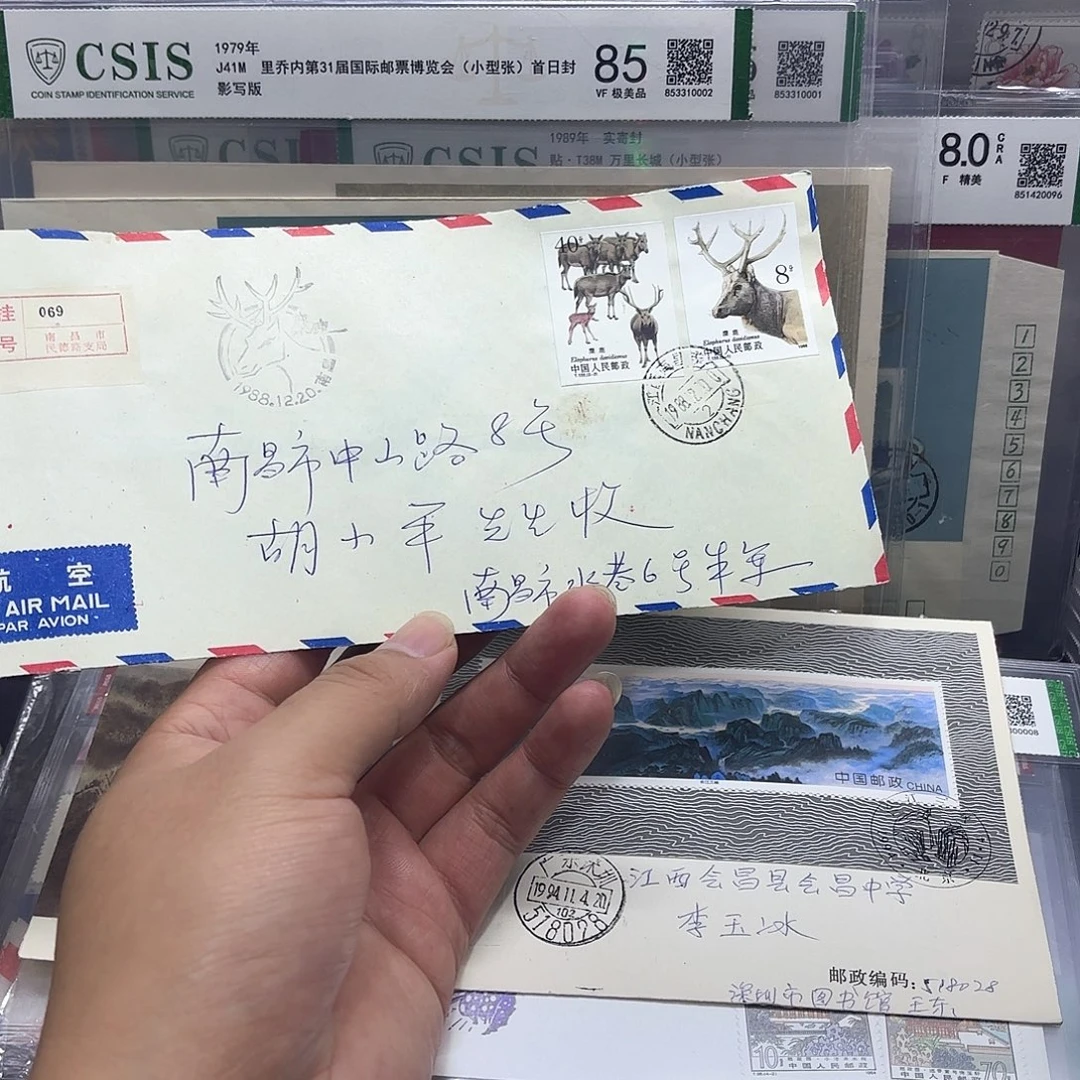 CSIS
COIN STAMP IDENTIFICATION SERVICE
1979年
J41M 里乔内第31届国际邮票博览会（小型张）首日封
影写版
85
VF 极美品
853310002
853310001
CSIS
CSIS
1989年 实寄封
贴·T38M 万里长城（小型张）
8.0
GRA
F 精美
851420096
挂
号
069
南昌市
民德路支局
1988.12.20.
40分
麋鹿
Elaphurus davidianus
中国人民邮政
8分
麋鹿
Elaphurus davidianus
中国人民邮政
NANCHANG
南昌市中山路8号
胡小军先生收
南昌市水巷6号朱军
航空
AIR MAIL
PAR AVION
1
2
3
4
5
6
7
8
9
0
中国邮政 CHINA
北京
1994.11.4.20
518028
江西会昌县会昌中学
李玉冰
邮政编码：518028
深圳市图书馆 王东
10分
中国人民邮政
70分
中国人民邮政